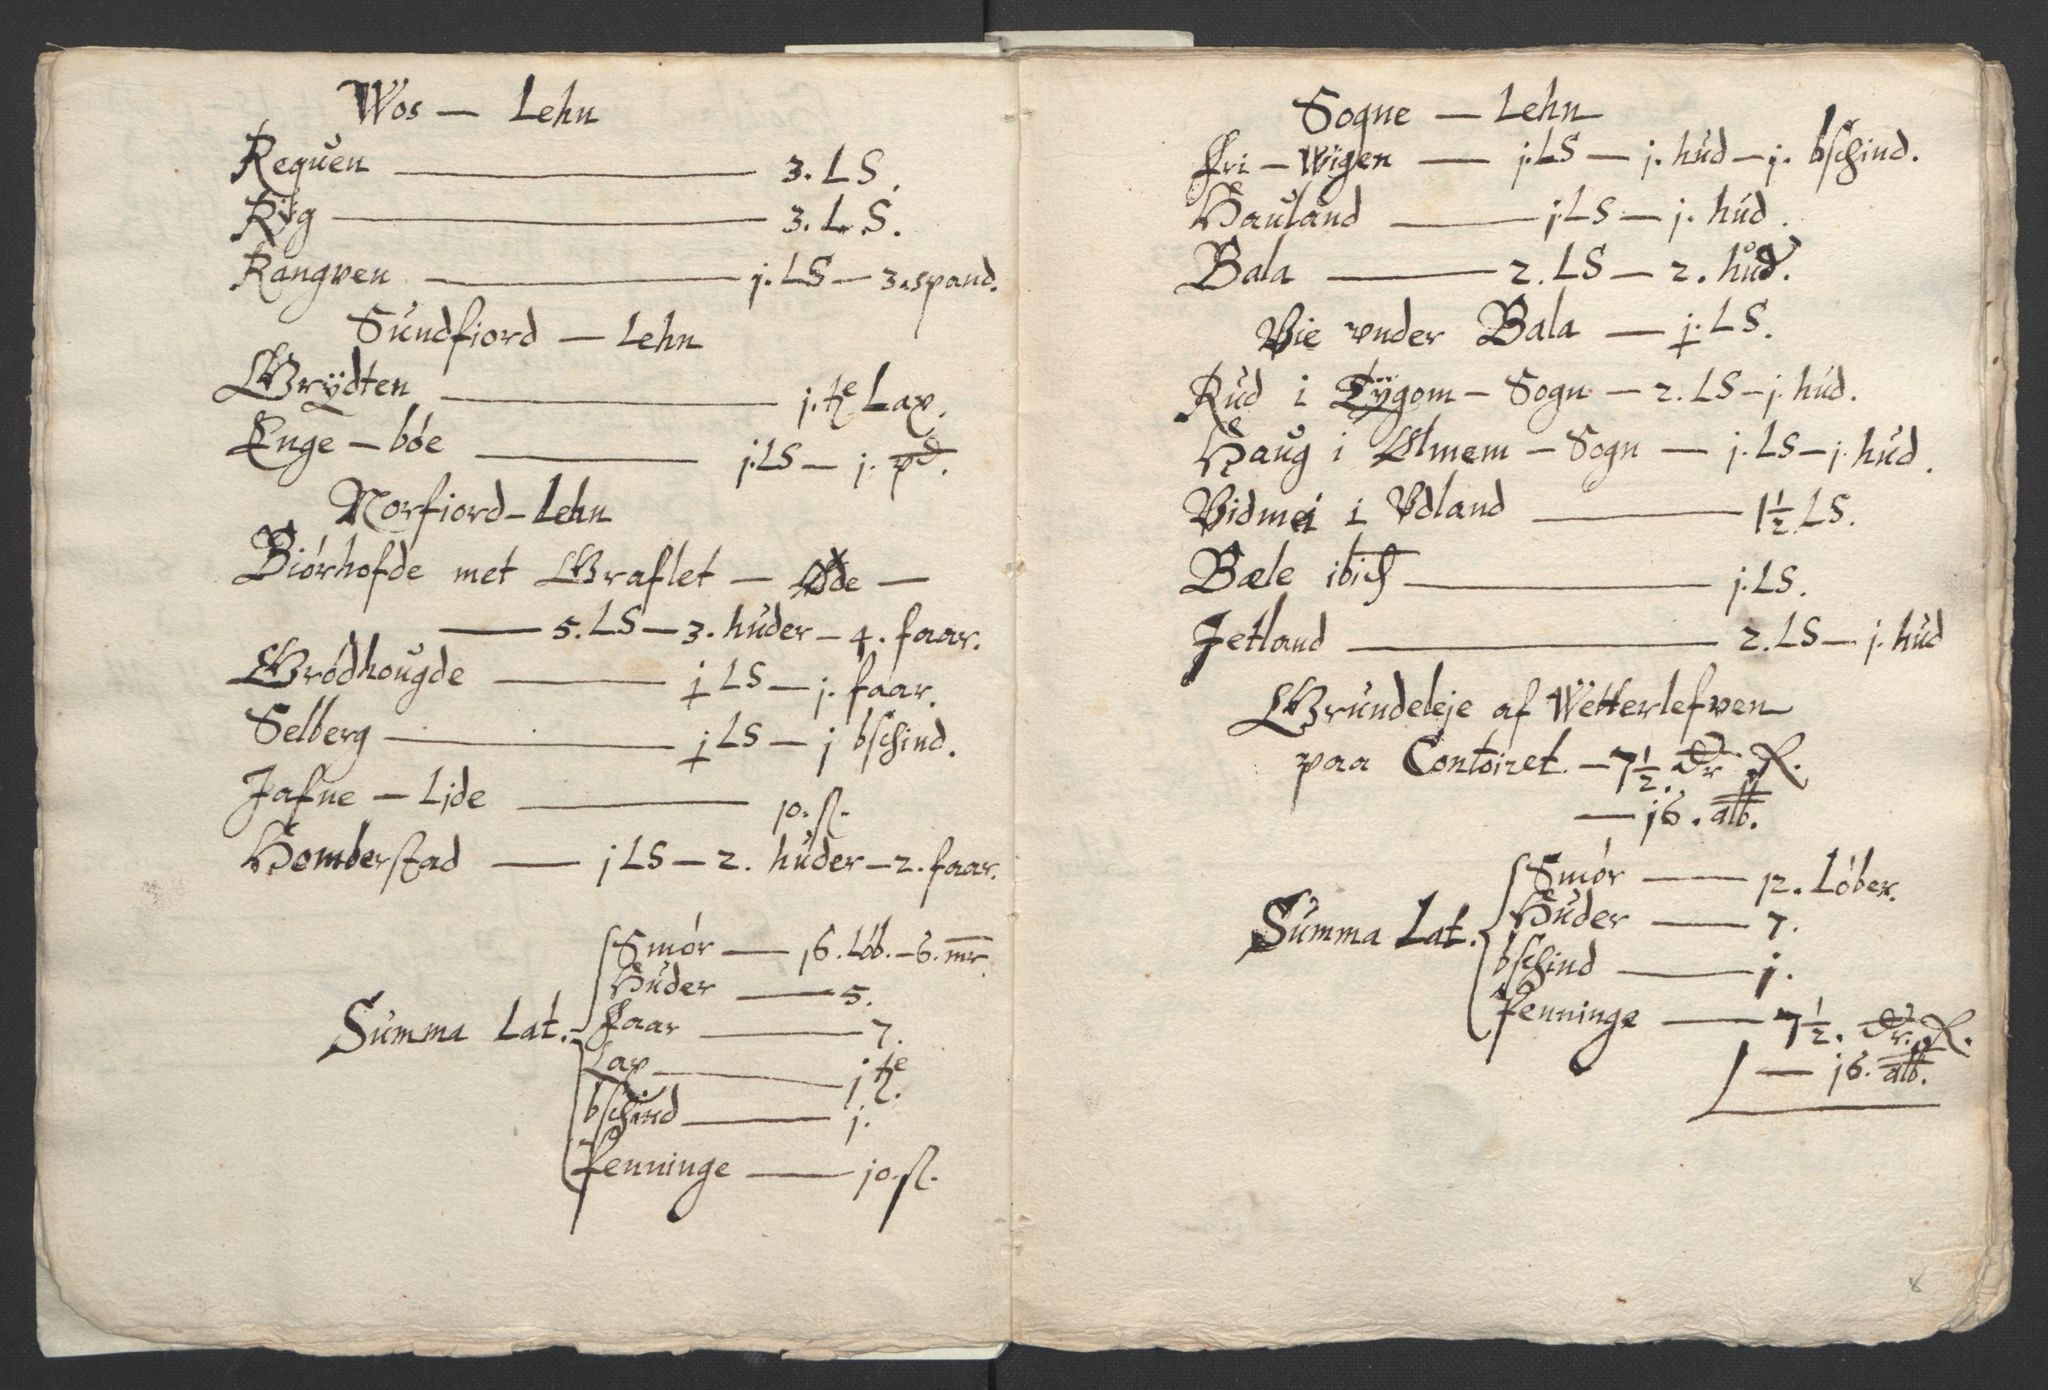 Wos — Lehn
Requen — 3. LS.
Rÿg — 3. LS.
Rangven — j. LS — 3. spand.
Sundfiord — Lehn
Grÿdten — j. tc Lax.
Enge — bøe — j. LS — j. pd.
Norfiord — Lehn
Biórhofde met Graflet — Øde —
— 5. LS — 3. huder — 4. faar.
Gródhougde — j LS — j. faar.
Selberg — j LS — j bschind.
Jafne — Lide — 10. ß.
Homberstad — j LS — 2. huder — 2. faar.
Smór — 16. Lób. — 6. mr.
Huder — 5.
Summa Lat. faar — 7.
Lax — j tc.
bschind — j.
Penninge — 10. ß.
Sogne — Lehn
Fri — Wigen — j. LS — j. hud — j. bschind.
Hauland — j. LS — j. hud.
Bala — 2. LS — 2. hud.
Vie vnder Bala — j. LS.
Rud i Tÿgom — Sogn — 2. LS — j. hud.
Haug i Olmem — Sogn — j. LS — j. hud.
Vidmei i Vdland — 1½ LS.
Bæle ibid — j. LS.
Jetland — 2. LS — j. hud
Grundeleje af Wetterlefven
paa Contoiret — 7½. Dr R.
— 16. alb.
Smór — 12. Lóber.
Summa Lat. Huder — 7.
bschind — j.
Penninge — 7½. Dr. R.
— 16. alb.
8